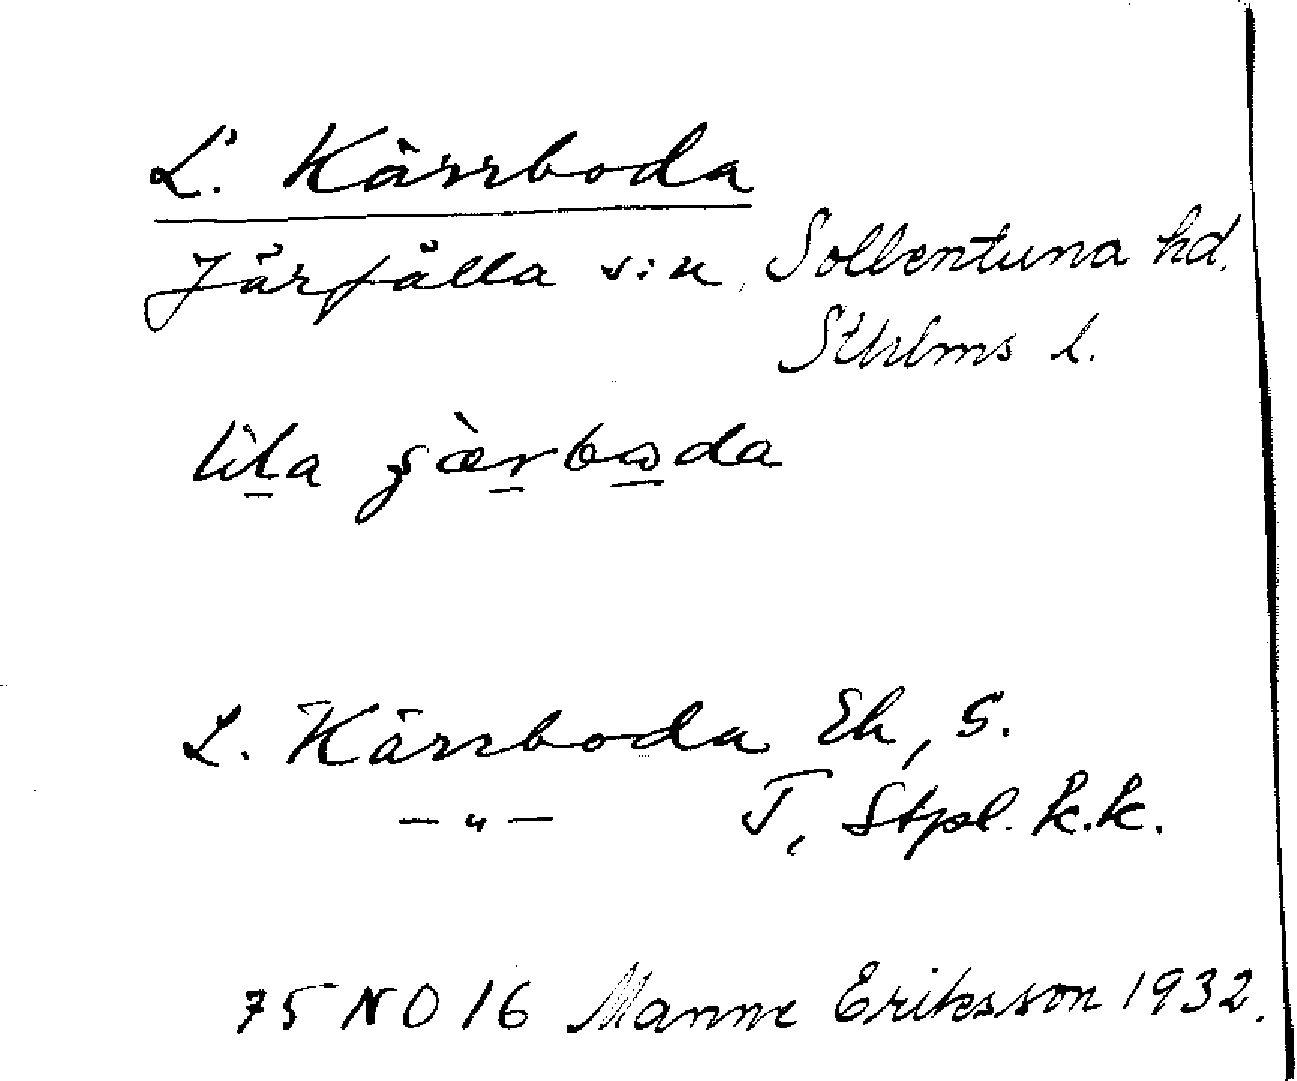 L. Kärrboda
Järfälla s:n, Sollentuna hd.
Sthlms l.
lìla çæ̀rboda
L. Kärrboda Ek, S.
—"— T, Stpl. k.k.
75 NO 16 Manne Eriksson 1932.